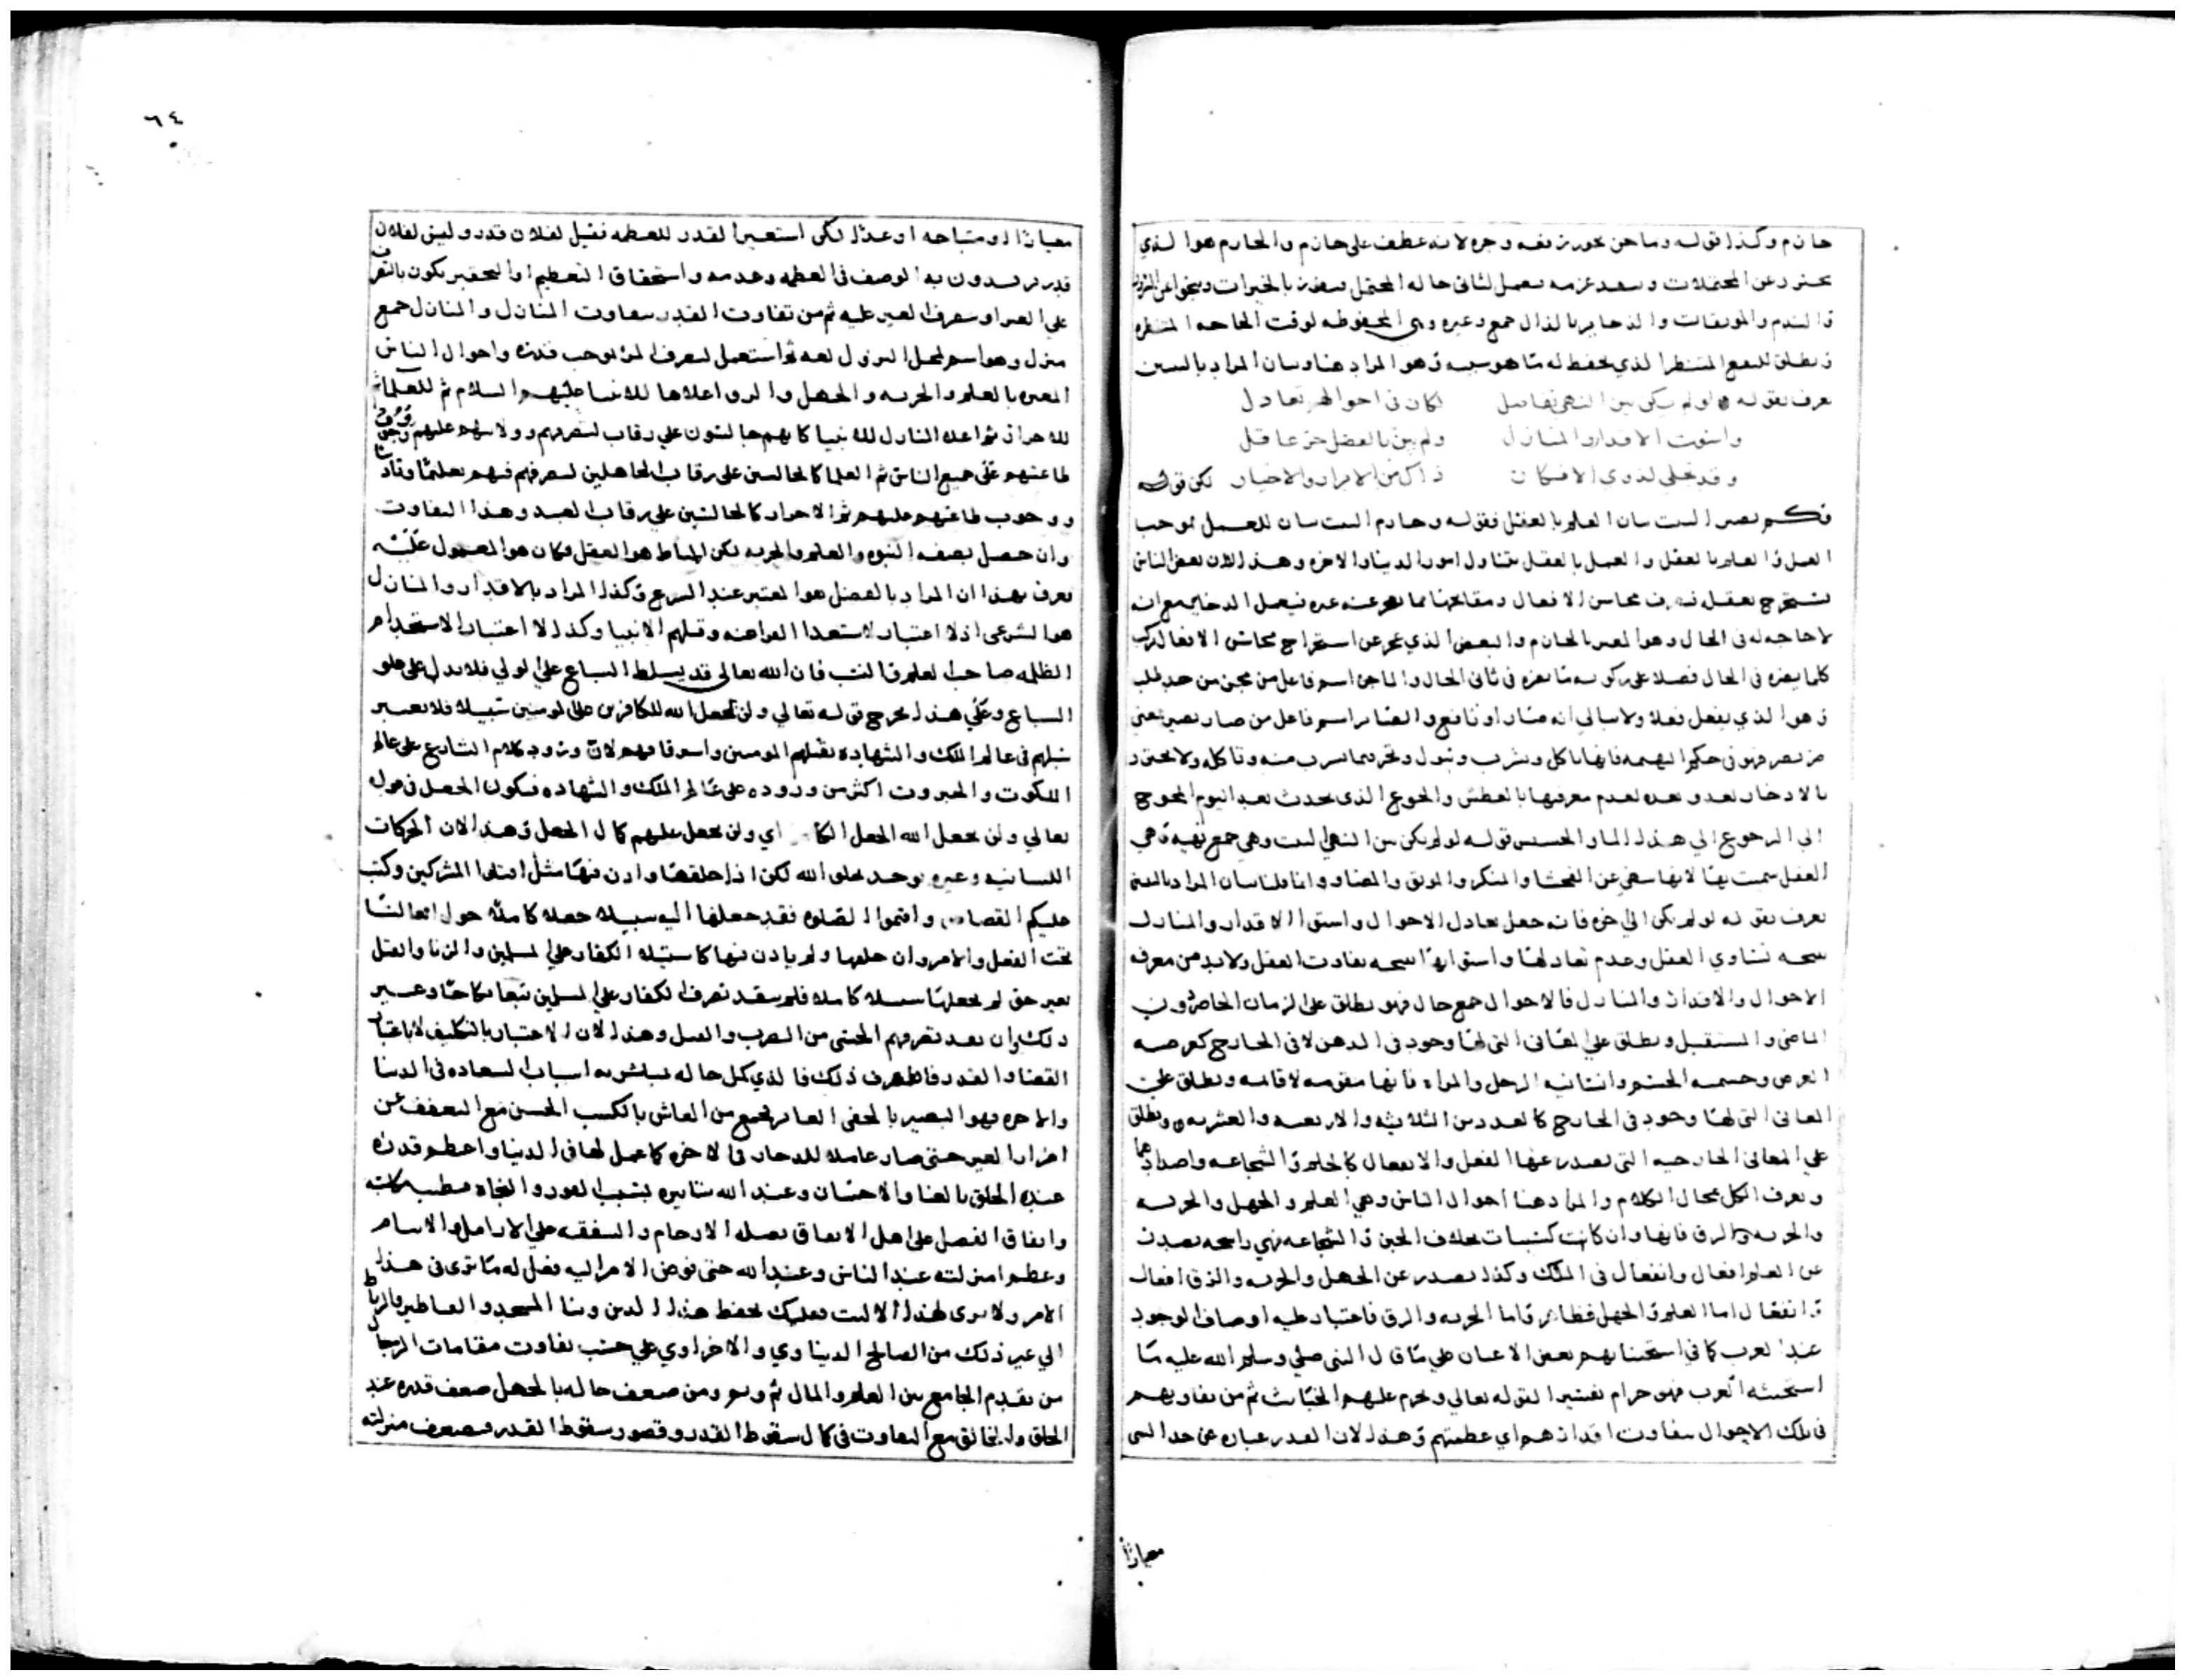 حازم وكذا قوله وما حن بحور نفه وجره لانه عطف على حازم والحازم هوا لذي
يحترز عن المحتملات وبعد عزمه يعمل لثاني حاله المحتمل ويفوز بالخيرات وينجوا عن
والندم والموبقات والذخاير بالذال جمع وغيره وهي المحفوظه لوقت الحاجه المنتظره
وتطلق للنفع المنتظر الذي يحفظ له ما هو سببه وهو المراد هنا وبيان المراد بالسين
يعرف بقوله لو لم يكن بين النهى تفاضل لكان في احوالهم تعادل
واستوت الاقدار والمنازل ولم يبن بالفضل حر عاقل
وقد تجلى لذوي الافكار ذاك من الابرار والاخيار لكن قوله
فكم بصير البيت بيان العلم بالعقل فقوله وحازم البيت بيان للعمل بموجب
العقل والعلم بالعقل والعمل بالعقل يتناول امور الدنيا والاخره وهذا لان بعض الناس
يستخرج بعقله محاسن الافعال ومقابحها مما يعجز عنه غيره فيعمل الدخاير مع انه
لا حاجه له في الحال وهو المعبر بالحازم والبعض الذي عجز عن استخراج محاسن الافعال يركب
كلما يغره في الحال فضلا على ركوبه ما يغره في ثاني الحال والماجن اسم فاعل من مجن من حد طلب
وهو الذي يفعل فعلا ولا يبالي انه ضار او نافع والصاير اسم فاعل من صار يصير يعني
من يصر فهو في حكم البهيمه فانها تاكل وتشرب وتبول وتخر فيما تشرب منه وتاكله ولا يعتني
بالادخار لغد وبعده لعدم معرفتها بالعطش والجوع الذي يحدث بعد اليوم المحوج
الى الرجوع الى هذا الماء والحشيش قوله لو لم يكن بين النهى البيت وهي جمع نهيه وهي
العقل سميت بها لانها تنهى عن الفحشا والمنكر والموبق والمضار وانا قلنا بيان المراد بالسين
يعرف بقوله لو لم يكن الى اخره فانه جعل تعادل الاحوال واستوا الاقدار والمنازل
نتيجه تساوي العقل وعدم تعادلها واستوائها نتيجه تفاوت العقل ولابد من معرفه
الاحوال والاقدار والمنازل فالاحوال جمع حال فهو يطلق على الزمان الحاضر دون
الماضي والمستقبل ويطلق على المعاني التي لها وجود في الذهن لا في الخارج كعرضيه
العرض وجسميه الجسم وانسانيه الرجل والمراه فانها مقومه لا قائمه ويطلق على
المعاني التي لها وجود في الخارج كالعدد من الثلاثه والاربعه والعشريه ويطلق
على المعاني الخارجيه التي يصدر عنها الفعل والانفعال كالحلم والشجاعه واضدادهما
ويعرف الكل بمحال الكلام والمراد هنا احوال الناس وهي العلم والجهل والحريه
والحريه والرق فانها وان كانت كسبيات بخلاف الجبن والشجاعه فهي راسخه يصدر
عن العلم افعال وانفعال في الملك وكذا يصدر عن الجهل والحريه والرق افعال
وانفعال اما العلم والجهل فظاهر واما الحريه والرق فاعتبار طيه اوصاف الوجود
عند العرب كما في استخبثاتهم بعض الاعيان على ما قال النبي صلى وسلم الله عليه ما
استخبثه العرب فهو حرام تفسيرا لقوله تعالى ويحرم عليهم الخبائث ثم من تفاوتهم
في تلك الاحوال تتفاوت اقدارهم اي عظمتهم وهذا لان القدر عباره عن حد الشي
معيارا
٦٤
معيارا او مساحه او عدا لكن استعير القدر للعظمه فقيل لفلان قدر وليس لفلان
قدر يريدون به الوصف في العظمه وعدمه واستحقاق التعظيم او التحقير يكون بالتصرف
على الغير او بتصرف الغير عليه ثم من تفاوت القدر تتفاوت المنازل والمنازل جمع
منزل وهو اسم لمحل النزول لغه ثم استعمل لتصرف المرء بموجب قدره واحوال الناس
المعبره بالعلم والحريه والجهل والرق واعلاها للانبيا عليهم السلام ثم للعلما ثم
للاحرار ثم اعلا المنازل للانبيا كانهم جالسون على رقاب لتصرفهم وولايتهم عليهم ووجوب
طاعتهم على جميع الناس ثم العلما كالجالسين على رقاب الجاهلين لتصرفهم فيهم تعليما وتاديبا
ووجوب طاعتهم عليهم ثم الاحرار كالجالسين على رقاب العبيد وهذا التفاوت
وان حصل بصفه النبوه والعلم والحريه لكن المناط هو العقل فكان هو المعمول عليه
يعرف بهذا ان المراد بالفضل هو المعتبر عند الشرع وكذا المراد بالاقدار والمنازل
هو الشرعي اذ لا اعتبار لاستعداد الفراعنه وقتلهم الانبيا وكذا لا اعتبار لاستخدام
الظلمه صاحب العلم والنسب فان الله تعالى قد يسلط السباع على الولي فلا يدل على علو
السباع وعلى هذا يخرج قوله تعالى ولن يجعل الله للكافرين على المومنين سبيلا فلا يعتبر
سبلهم في عالم الملك والشهاده بقتلهم المومنين واسترقاقهم لان ورود كلام الشارع على عالم
الملكوت والجبروت اكثر من وروده على عالم الملك والشهاده فيكون الجعل في قوله
تعالى ولن يجعل الله الجعل الكا اي ولن يجعل عليهم كمال الجعل وهذا لان الحركات
اللسانيه وغيره يوجد بخلق الله لكن اذا خلقها واذن فيها مثل اقتلوا المشركين وكتب
عليكم القصاص واقيموا الصلوه فقد جعلها اليه سبيلا جعلا كاملا حول افعالنا
تحت الفعل والامر وان خلقها ولم ياذن فيها كاستيلا الكفار على المسلمين والزنا والقتل
بغير حق لم يجعلها سبيلا كاملا فلم ينفذ تصرف الكفار على المسلمين
ذلك وان نفذ تصرفهم الحسي من الضرب والقتل وهذا لان الاختبار بالتكليف لا باعتبار
القضا والقدر فاذا ظهر ذلك فالذي كمل حاله بمباشره اسباب السعاده في الدنيا
والاخره فهو البصير بالخفي العالم بجميع من المعاش بالكسب الحسن مع التعفف عن
اضرار الغير حتى صار عاملا للدخار في الاخره كما عمل لها في الدنيا واعظم قدره
عند الخلق بالغنا والاحسان وعند الله تتاثيره بسبب الفوز والنجاه بطيب مكاسبه
وانفاق الفضل على اهل الانفاق بصله الارحام والشفقه على الارامل والايتام
وعظم منزلته عند الناس وعند الله حتى يفوض الامر اليه فقيل له ما ترى في هذا
الامر ولا نرى لهذا الا انت فعليك بحفظ هذا الدين وبنا المسجد والقناطير والرباط
الى غير ذلك من المصالح الدنياوي والاخراوي على حسب تفاوت مقامات الرجال
من تقدم الجامع بين العلم والمال ثم ومن ضعف حاله بالجهل ضعف قدره عند
الخلق والخالق مع التفاوت في كمال سقوط القدر وقصور سقوط القدر فيضعف منزلته